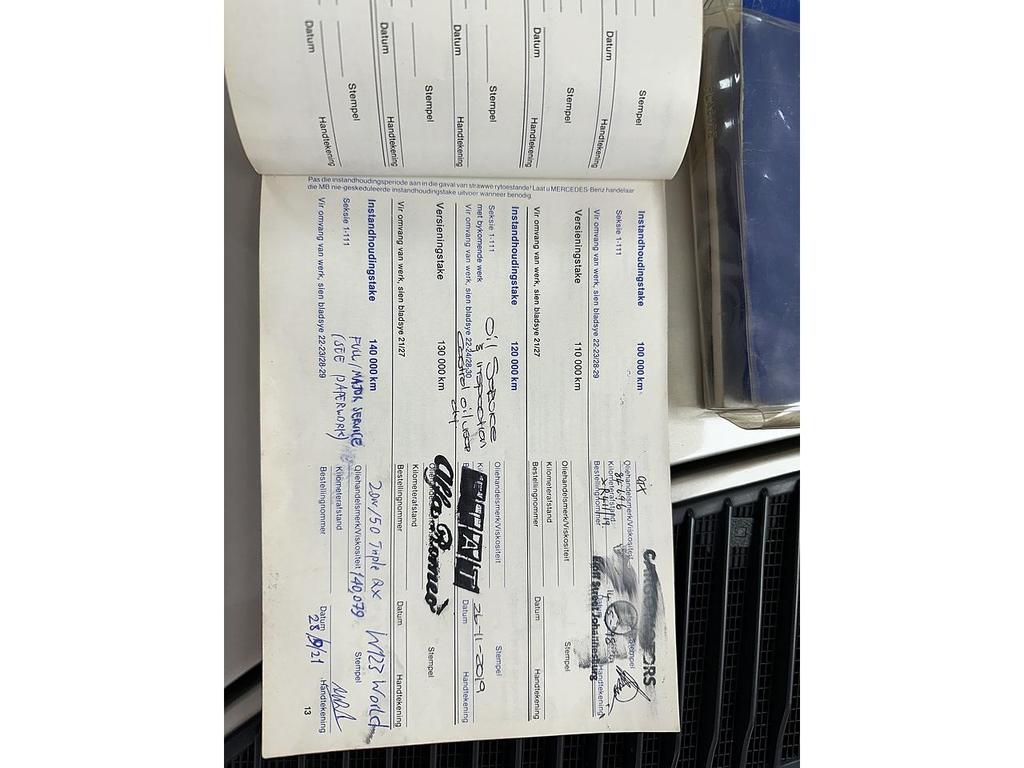 Datum
Stempel
Handtekening
Datum
Stempel
Handtekening
Datum
Stempel
Handtekening
Datum
Stempel
Handtekening
Datum
Stempel
Handtekening
Pas die instandhoudingsperiode aan in die geval van strawwe rytoestande! Laat u MERCEDES-Benz handelaar
die MB nie-geskeduleerde instandhoudingstake uitvoer wanneer benodig
Instandhoudingstake 100 000 km
Seksie 1-111
Vir omvang van werk, sien bladsye 22-23/28-29
Oliehandelsmerk/Viskositeit GTX
Kilometerafstand 84696
Bestellingnommer
Stempel
Handtekening
CARGO MOTORS
Hoff Street Johannesburg
Versieningstake 110 000 km
Vir omvang van werk, sien bladsye 21/27
Oliehandelsmerk/Viskositeit
Kilometerafstand
Bestellingnommer
Datum
Stempel
Handtekening
Instandhoudingstake 120 000 km
Seksie 1-111
met bykomende werk
Vir omvang van werk, sien bladsye 22-24/28-30
Oil Service
& inspection
Oliehandelsmerk/Viskositeit
FIAT
Datum 26-11-2019
Stempel
Handtekening
Versieningstake 130 000 km
Vir omvang van werk, sien bladsye 21/27
Kilometerafstand
Bestellingnommer
Alfa Romeo
Datum
Stempel
Handtekening
Instandhoudingstake 140 000 km
Seksie 1-111
Vir omvang van werk, sien bladsye 22-23/28-29
FULL/MAJOR SERVICE
(SEE PAPERWORK)
Oliehandelsmerk/Viskositeit 20W/50 Triple QX
Kilometerafstand 140,079
Bestellingnommer
W123 World
Datum 28/9/21
Stempel
Handtekening
13